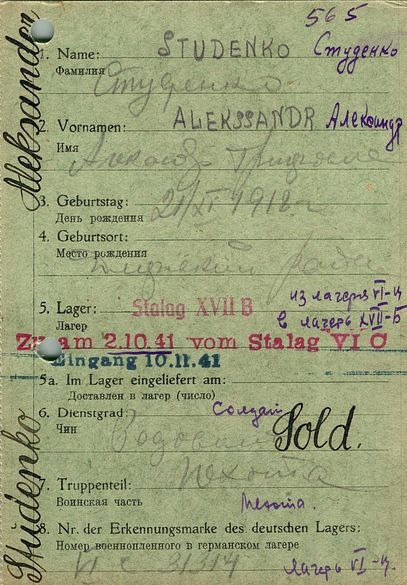 565
Aleksander
Studenko
1. Name: STUDENKO Студенко
Фамилия Студенко
2. Vornamen: ALEKSSANDR Александр
Имя
3. Geburtstag: 21/XI 1918 г
День рождения
4. Geburtsort:
Место рождения
5. Lager: Stalag XVII B из лагеря VI-Ц
Лагерь в лагерь XVII-Б
Zugang am 2.10.41 vom Stalag VI C
Eingang 10.11.41
5a. Im Lager eingeliefert am:
Доставлен в лагерь (число)
6. Dienstgrad: Солдат Sold.
Чин
Пехота
7. Truppenteil:
Воинская часть Пехота.
8. Nr. der Erkennungsmarke des deutschen Lagers:
Номер военнопленного в германском лагере
VI C 31314 лагерь VI-Ц